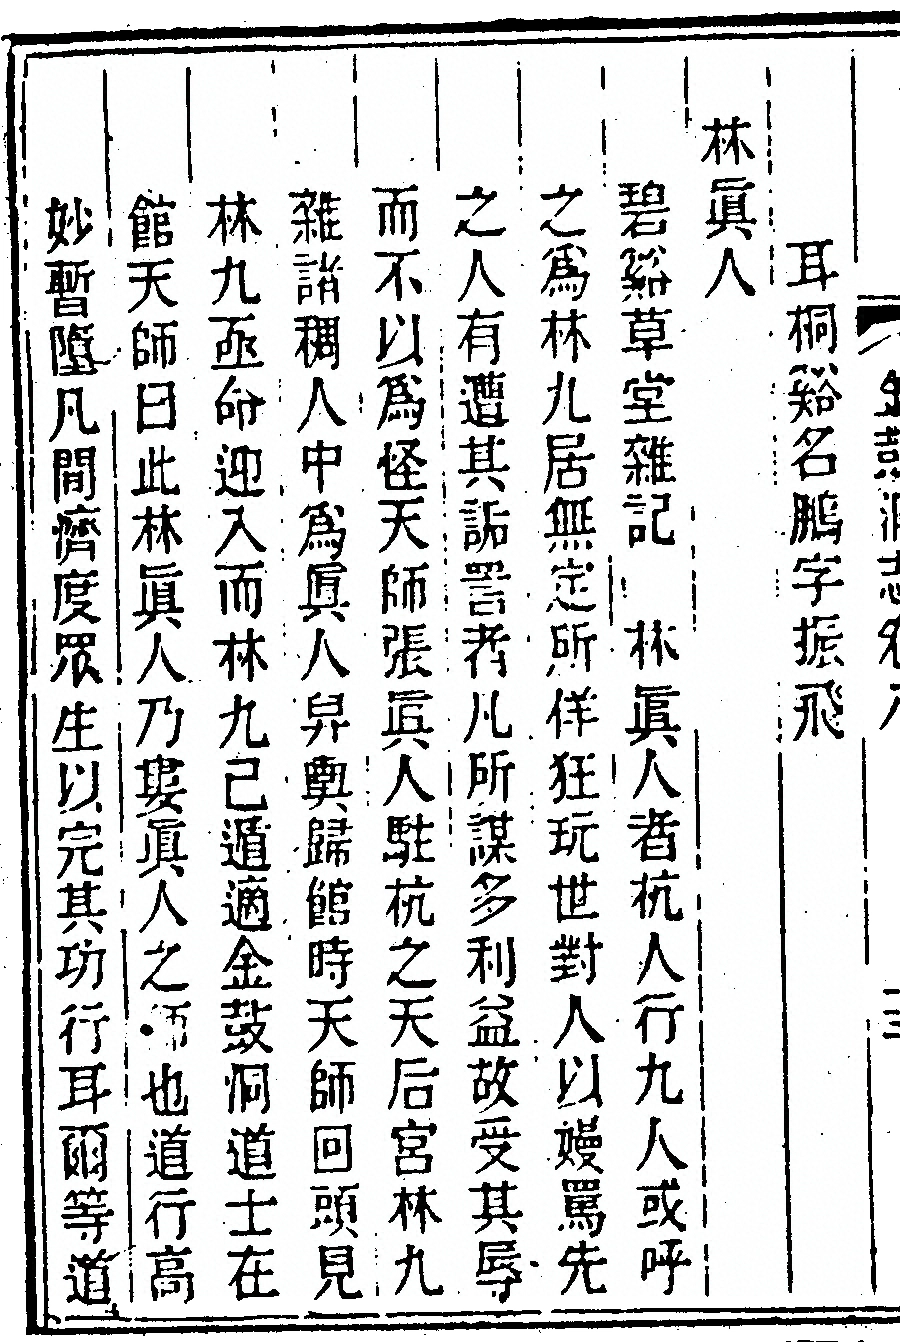 金鼓洞志卷八
三
耳桐谿名鵬字振飛
林眞人
碧谿草堂雜記　林眞人者杭人行九人或呼
之爲林九居無定所佯狂玩世對人以嫚罵先
之人有遭其詬詈者凡所謀多利益故受其辱
而不以爲怪天師張眞人駐杭之天后宮林九
雜諸稠人中爲眞人舁輿歸館時天師回頭見
林九亟命迎入而林九已遁適金鼓洞道士在
館天師曰此林眞人乃婁眞人之師也道行高
妙暫墮凡間濟度眾生以完其功行耳爾等道